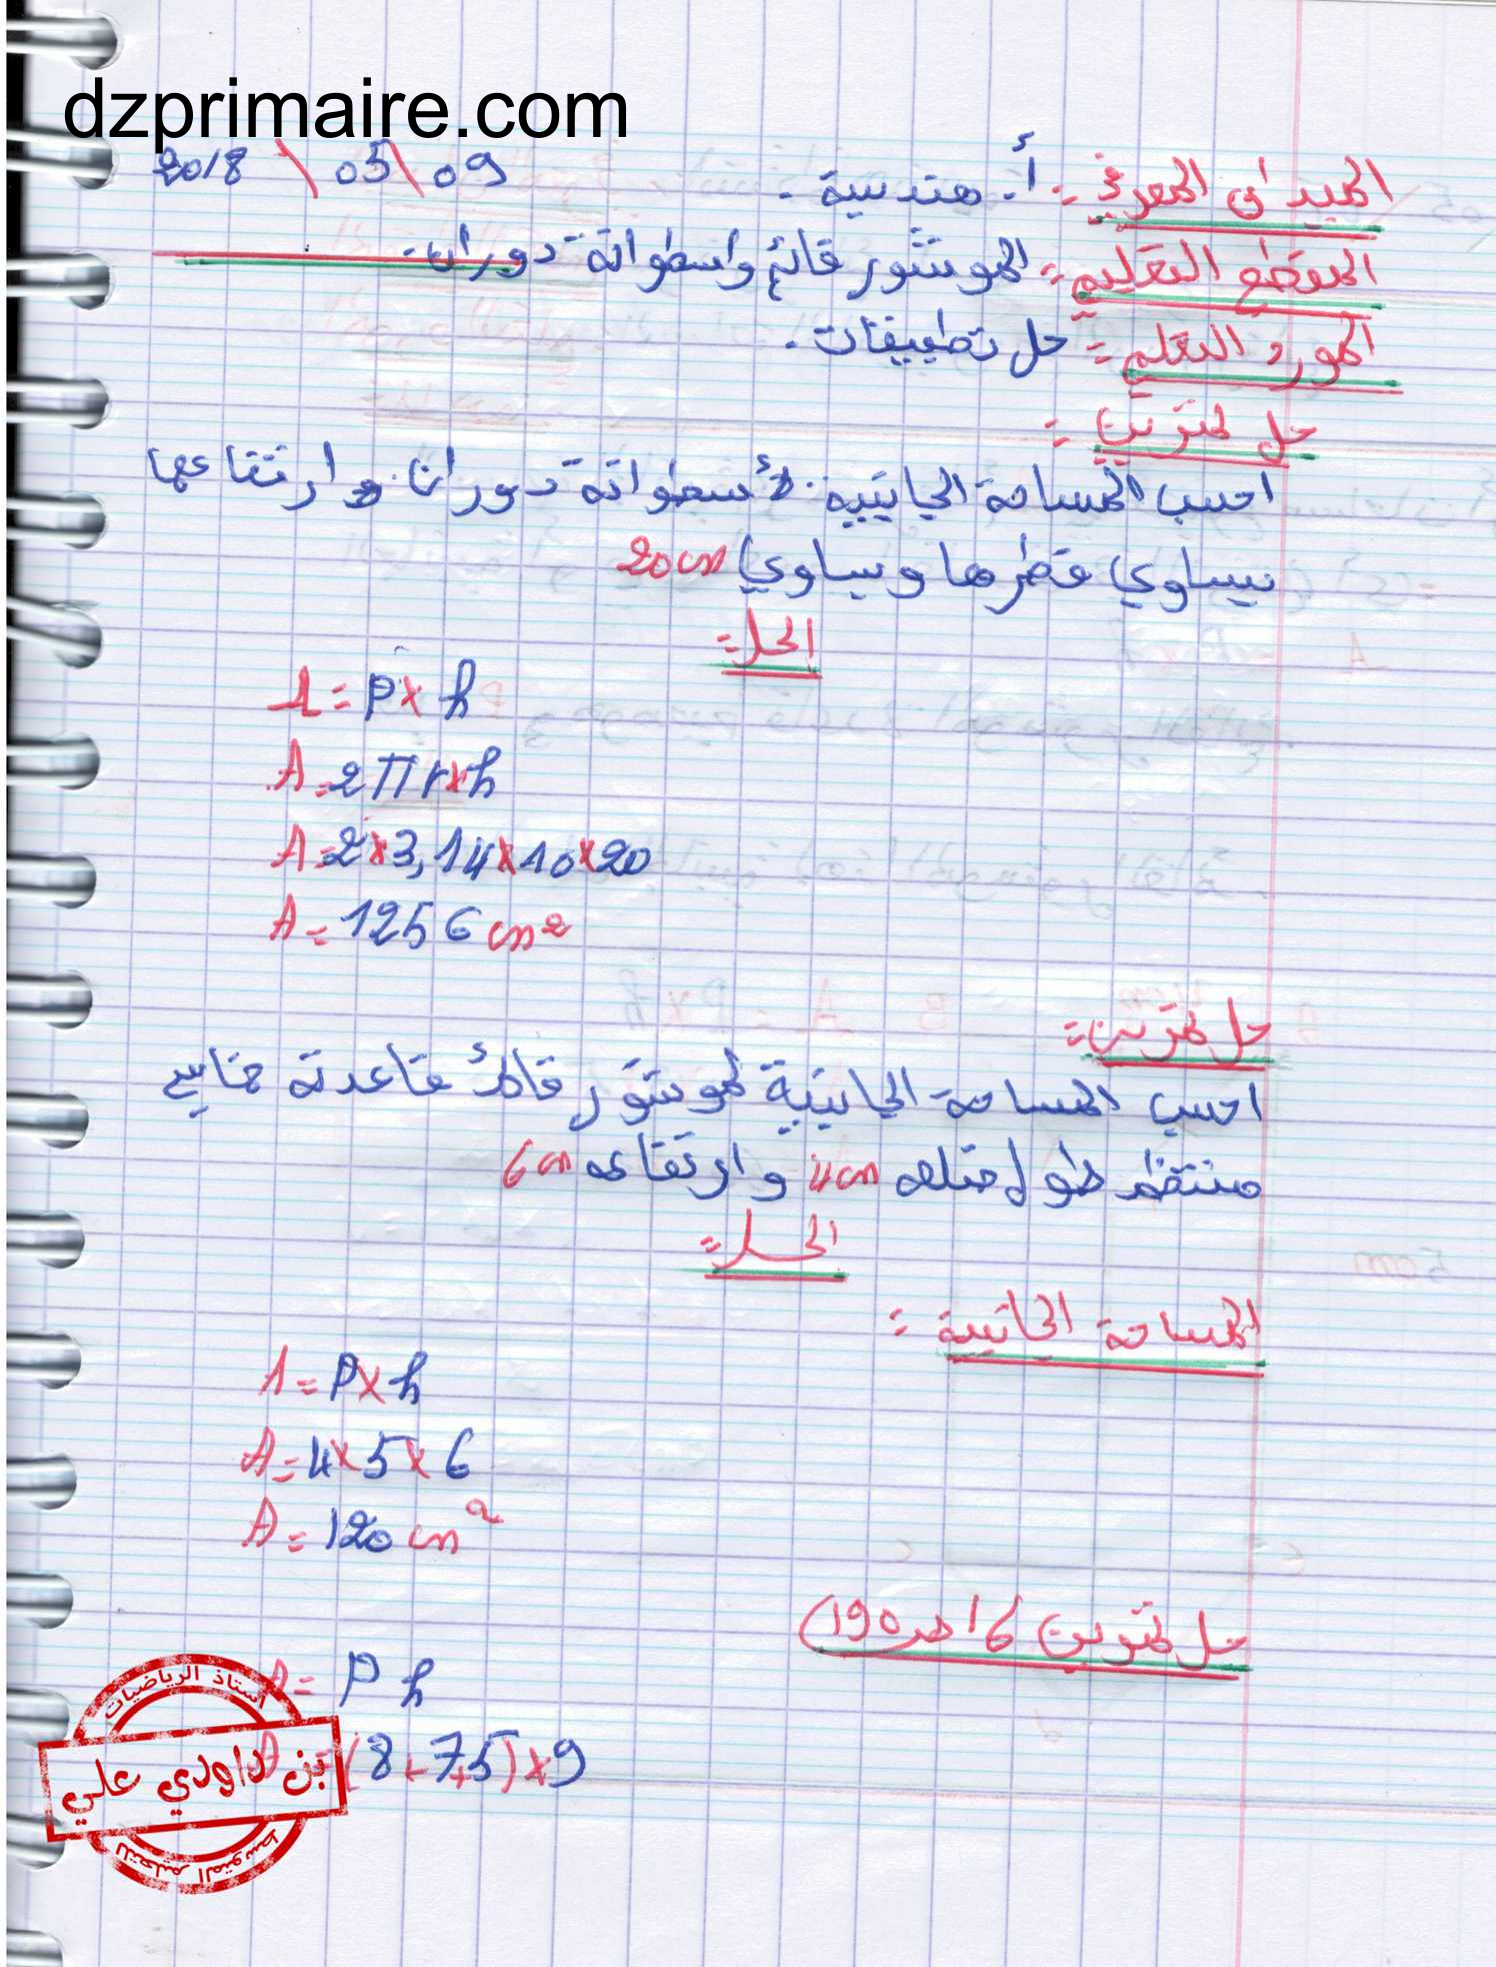 dzprimaire.com
2018 \ 05 \ 09
الميدان المعرفي :- أ. هندسية .
المقطع التعليم :- الموشور قائم واسطوانة دوران.
المورد التعلم :- حل تطبيقات .
حل تمرين :
احسب المساحة الجانبية لأسطوانة دوران وارتفاعها
يساوي قطرها ويساوي 20cm
الحل :-
A = P x h
A = 2πr x h
A = 2 x 3,14 x 10 x 20
A = 1256 cm²
حل تمرين :-
احسب المساحة الجانبية لموشور قائم قاعدته خماسي
منتظم طول ضلعه 4cm وارتفاعه 6cm
الحل :-
المساحة الجانبية :
A = P x h
A = 4 x 5 x 6
A = 120 cm²
حل تمرين 6 ص 190)
A = P h
= (8 + 7,5) x 9
أستاذ الرياضيات
بن داودي علي
للتعليم المتوسط